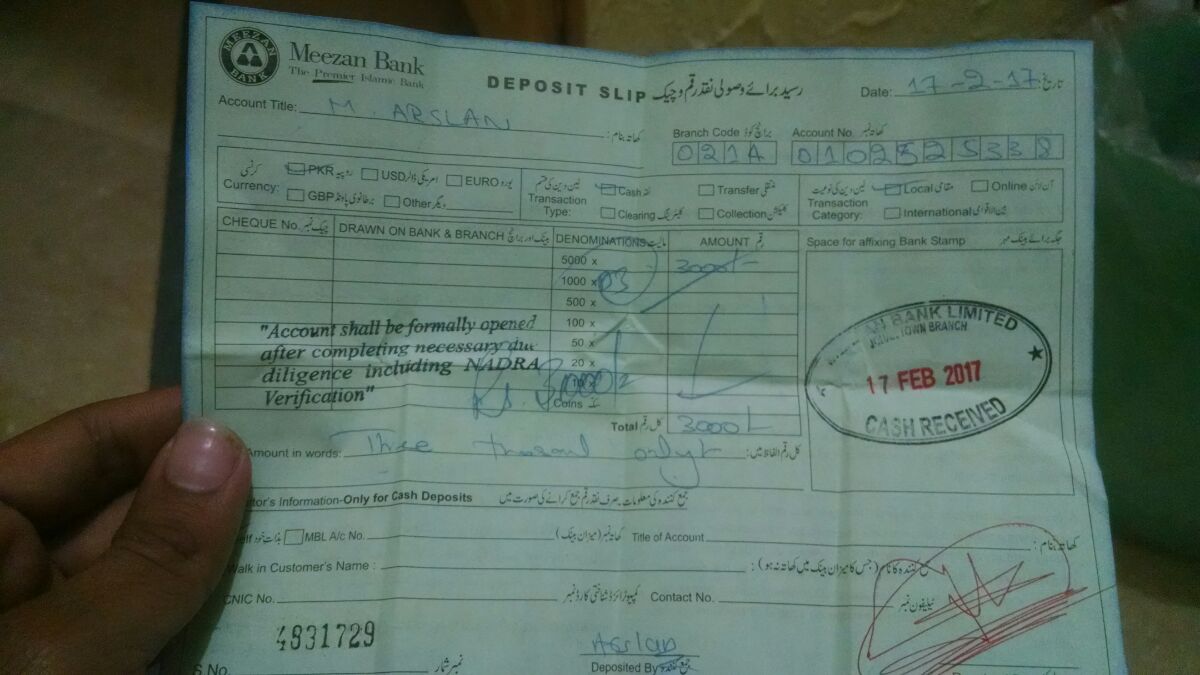 MEEZAN BANK
Meezan Bank
The Premier Islamic Bank
DEPOSIT SLIP رسید برائے وصولی نقد رقم و چیک
Date: 17-2-17 تاریخ:
Account Title: M. ARSLAN کھاتہ بنام:
Branch Code برانچ کوڈ Account No. کھاتہ نمبر
021A 0102525338
Currency: کرنسی PKR روپیہ USD امریکی ڈالر EURO یورو
GBP برطانوی پاؤنڈ Other دیگر
Transaction Type: لین دین کی قسم Cash نقد Transfer منتقلی
Clearing کلیئرنگ Collection کلیکشن
Transaction Category: لین دین کی نوعیت Local مقامی Online آن لائن
International بین الاقوامی
CHEQUE No. چیک نمبر DRAWN ON BANK & BRANCH بینک اور برانچ DENOMINATIONS مالیت AMOUNT رقم
Space for affixing Bank Stamp جگہ برائے بینک مہر
5000 x 3000/-
1000 x 03
500 x
100 x
50 x
20 x
10 x
Coins سکے
"Account shall be formally opened
after completing necessary due
diligence including NADRA
Verification"
Rs. 3000/-
BANK LIMITED
TOWN BRANCH
17 FEB 2017
CASH RECEIVED
Total کل رقم 3000/-
Amount in words: Three thousand only کل رقم الفاظ میں:
tor's Information-Only for Cash Deposits جمع کنندہ کی معلومات۔صرف نقد رقم جمع کرانے کی صورت میں
elf بذات خود MBL A/c No. کھاتہ نمبر (میزان بینک) Title of Account کھاتہ بنام:
Walk in Customer's Name : جمع کنندہ کا نام (جس کا میزان بینک میں کھاتہ نہ ہو):
CNIC No. کمپیوٹرائزڈ شناختی کارڈ نمبر Contact No. ٹیلیفون نمبر
4831729
S No. نمبر شمار
Arslan
Deposited By جمع کنندہ